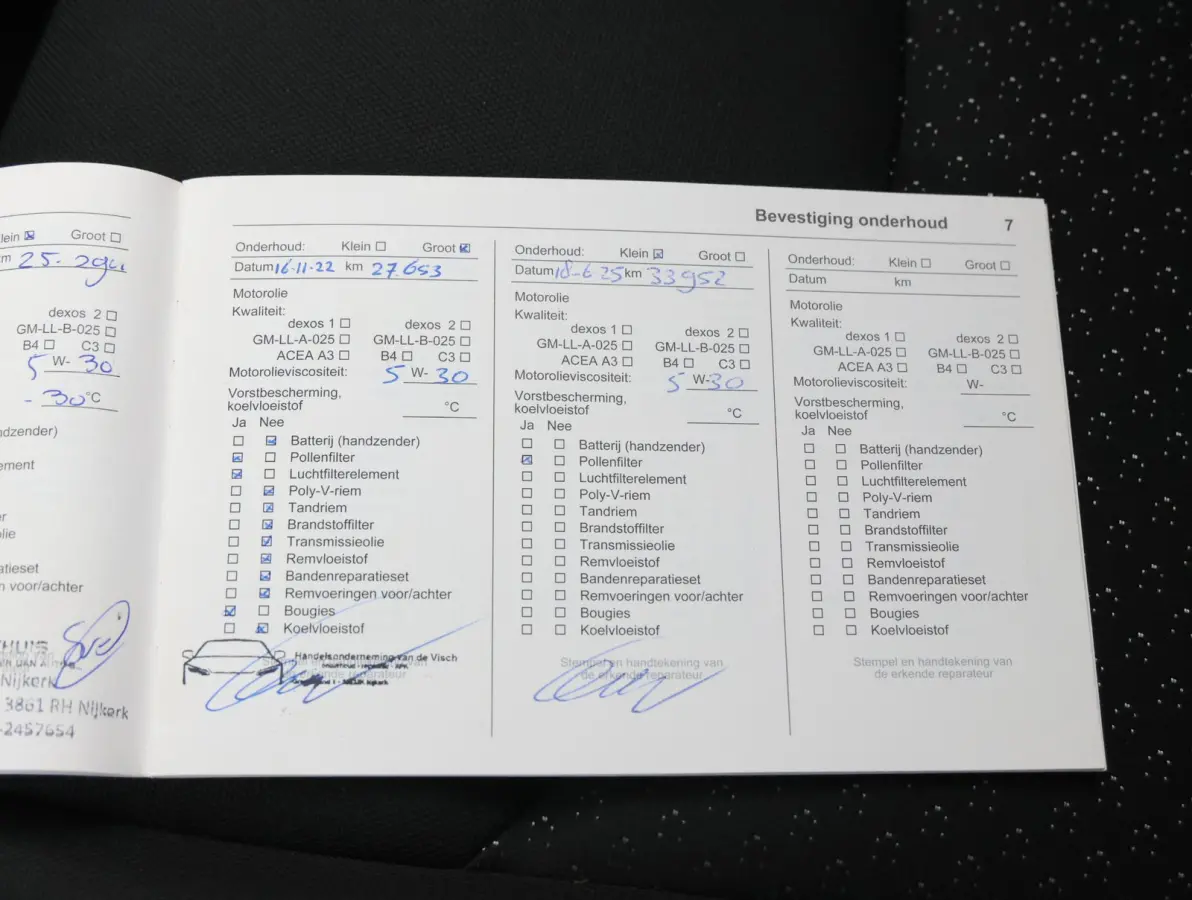 Klein Groot
25.294
dexos 2
GM-LL-B-025
B4 C3
5 W- 30
- 30 °C
ndzender)
ement
atieset
voor/achter
Nijkerk
3861 RH Nijkerk
-2457654
Bevestiging onderhoud 7
Onderhoud: Klein Groot
Datum 16-11-22 km 27.653
Motorolie
Kwaliteit:
dexos 1 dexos 2
GM-LL-A-025 GM-LL-B-025
ACEA A3 B4 C3
Motorolieviscositeit: 5 W- 30
Vorstbescherming,
koelvloeistof °C
Ja Nee
Batterij (handzender)
Pollenfilter
Luchtfilterelement
Poly-V-riem
Tandriem
Brandstoffilter
Transmissieolie
Remvloeistof
Bandenreparatieset
Remvoeringen voor/achter
Bougies
Koelvloeistof
Handelsonderneming van de Visch
Onderhoud: Klein Groot
Datum 18-6 25 km 33952
Motorolie
Kwaliteit:
dexos 1 dexos 2
GM-LL-A-025 GM-LL-B-025
ACEA A3 B4 C3
Motorolieviscositeit: 5 W-30
Vorstbescherming,
koelvloeistof °C
Ja Nee
Batterij (handzender)
Pollenfilter
Luchtfilterelement
Poly-V-riem
Tandriem
Brandstoffilter
Transmissieolie
Remvloeistof
Bandenreparatieset
Remvoeringen voor/achter
Bougies
Koelvloeistof
Stempel en handtekening van
de erkende reparateur
Onderhoud: Klein Groot
Datum km
Motorolie
Kwaliteit:
dexos 1 dexos 2
GM-LL-A-025 GM-LL-B-025
ACEA A3 B4 C3
Motorolieviscositeit: W-
Vorstbescherming,
koelvloeistof °C
Ja Nee
Batterij (handzender)
Pollenfilter
Luchtfilterelement
Poly-V-riem
Tandriem
Brandstoffilter
Transmissieolie
Remvloeistof
Bandenreparatieset
Remvoeringen voor/achter
Bougies
Koelvloeistof
Stempel en handtekening van
de erkende reparateur